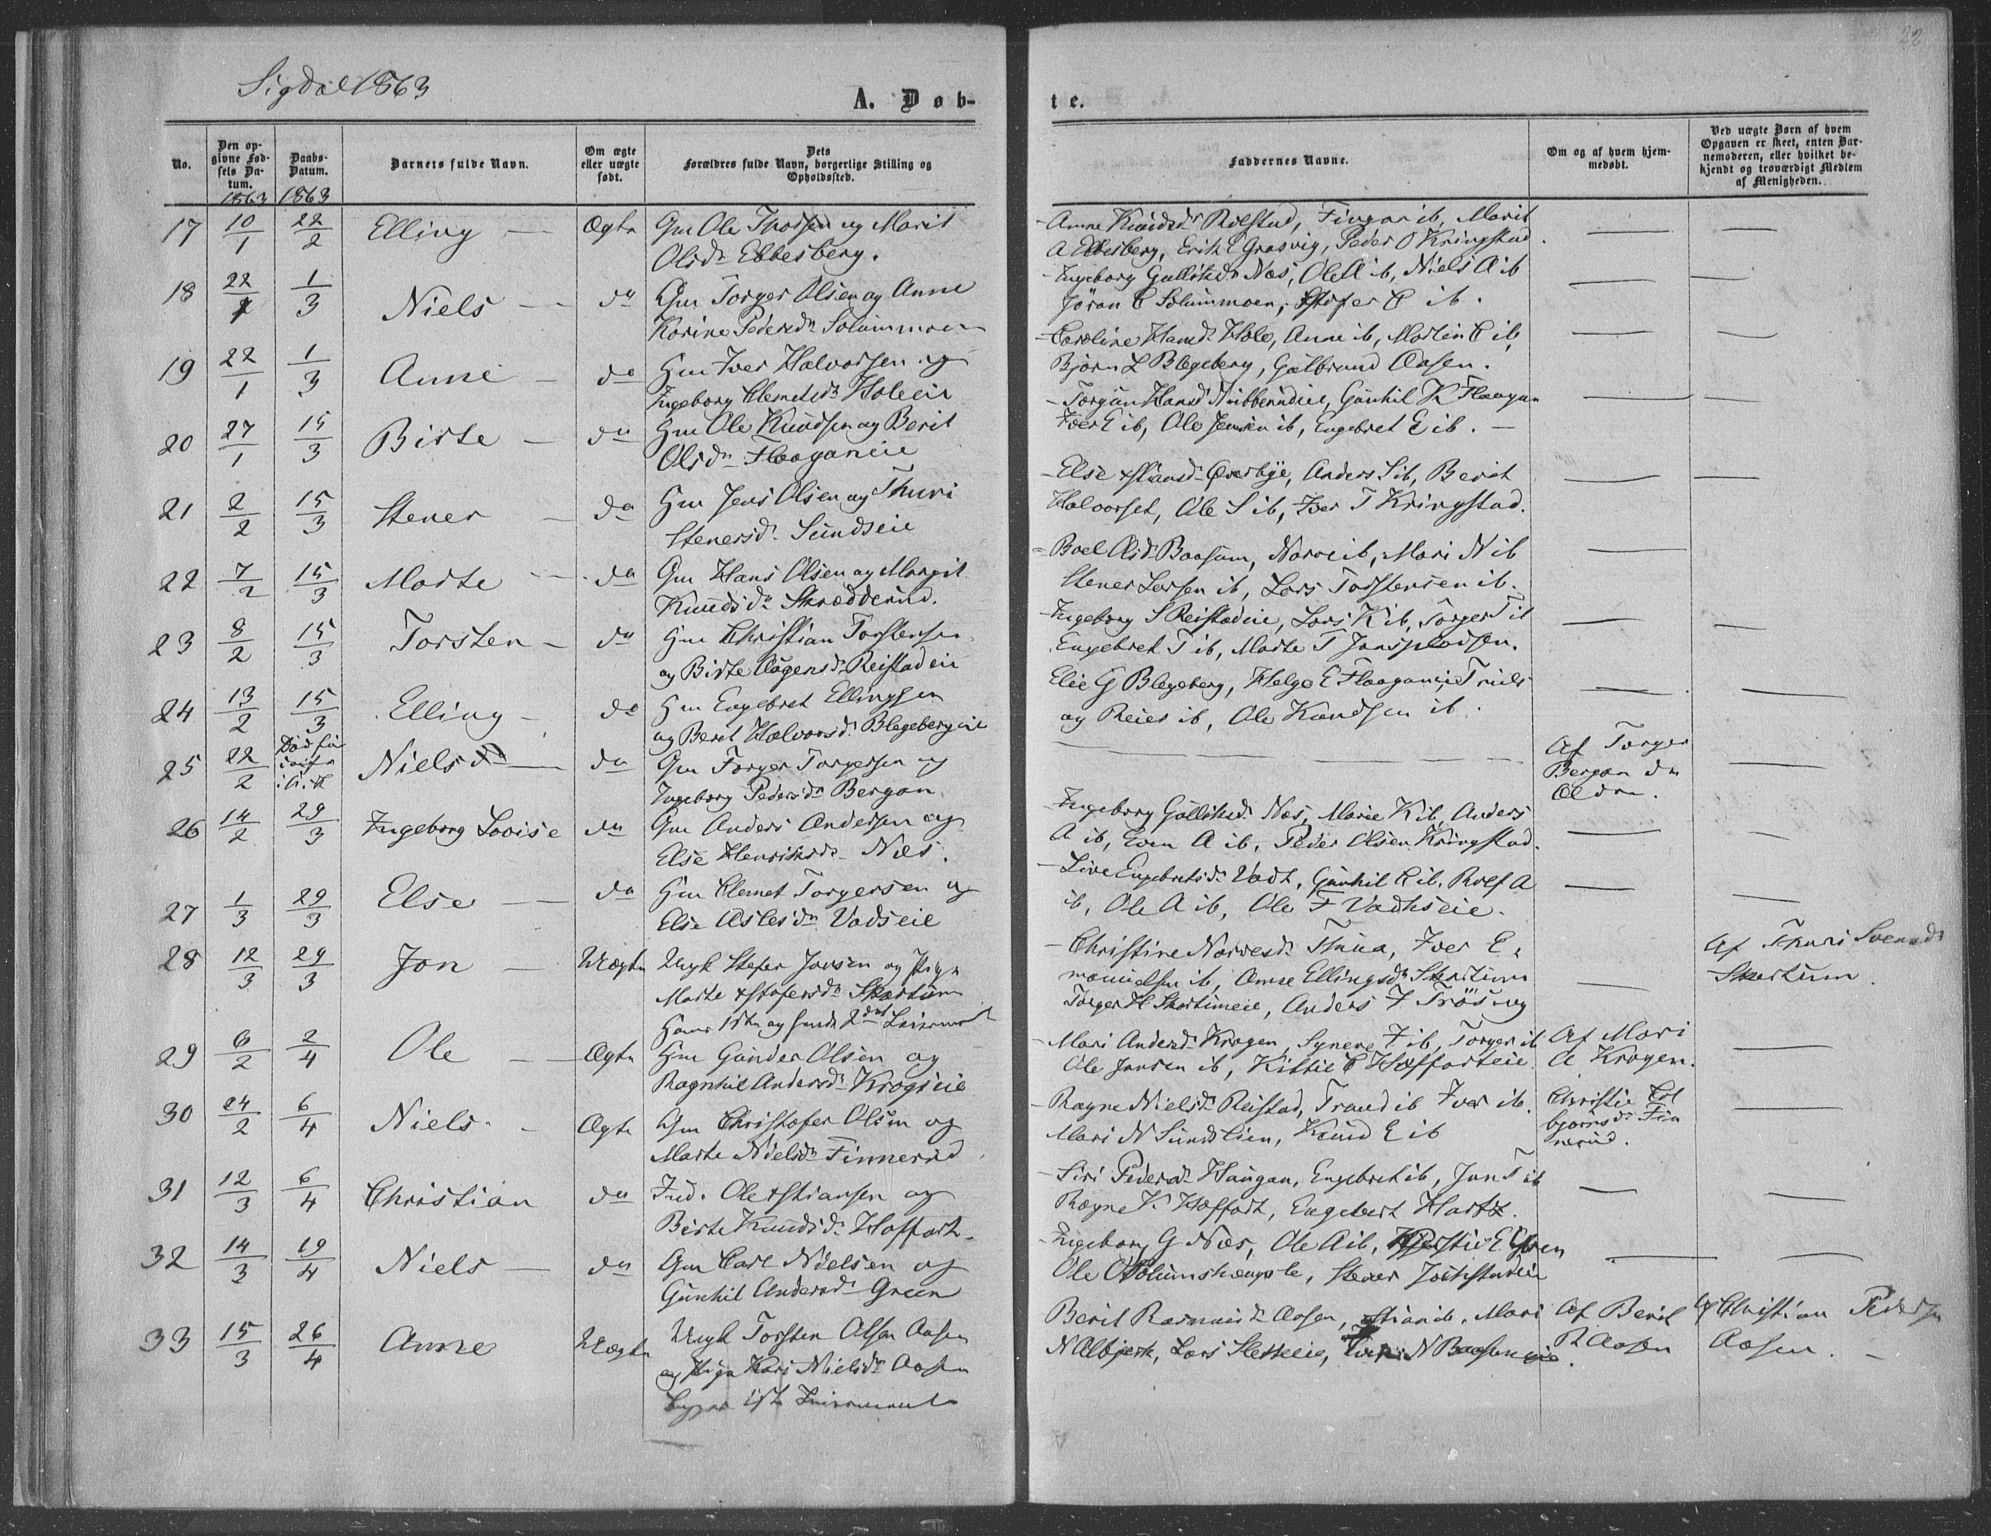 22
Sigdal 1863
A. Døb-
te.
No.
Den op-
givne Fød-
sels Da-
tum.
1863
Daabs-
Datum.
1863
Barnets fulde Navn.
Om ægte
eller uægte
født.
Dets
Forældres fulde Navn, borgerlige Stilling og
Opholdssted.
Faddernes Navne.
Om og af hvem hjem-
medøbt.
Ved uægte Børn af hvem
Opgaven er skeet, enten Bar-
nemoderen, eller hvilket be-
kjendt og troværdigt Medlem
af Menigheden.
17 10/1 22/2 Elling — Ægte Gm Ole Thorsen og Marit
Olsdr Ebbesberg.
Anne Knudsdr Rolstad, Fingar ib, Marit
A Ebbesberg, Erik E Grosvig, Peder O Kringstad.
18 22/1 1/3 Niels — do Gm Torger Olsen og Anne
Karine Pedersdr Solummoen
Ingeborg Gulliksdr Næs, Ole A ib, Niels A ib
Jöran C Solummoen, Stofer C ib.
19 22/1 1/3 Anne — do Hm Iver Halvorsen og
Ingeborg Clemetsdr Holeeie
Caroline Hansdr Hole, Anne ib, Martin C ib,
Bjørn L Blegeberg, Gulbrand Aasen.
20 27/1 15/3 Birte — do Hm Ole Knudsen og Berit
Olsdr Haaganeie
Torgun Hansd Nubberudeie, Gunhil K Haagan
Iver E ib, Ole Jensen ib, Engebret E ib. —
21 2/2 15/3 Stener — do Hm Jens Olsen og Thuri
Stenersdr Sundseie
Else Hansdr Overbye, Anders S ib, Berit
Halvorset, Ole S ib, Iver T Kringstad.
22 7/2 15/3 Marte — do Gm Hans Olsen og Margit
Knudsdr Skrædderud.
Boel Olsdr Baasum, Narve ib, Mari N ib
Stener Larsen ib, Lars Torstensen ib.
23 8/2 15/3 Torsten — do Hm Christian Torstensen
og Birte Aagensdr Reistadeie
Ingeborg S Reistadeie, Lars K ib, Torger T ib
Engebret T ib, Marte T Jonspladsen.
24 13/2 15/3 Elling — do Hm Engebret Ellingsen
og Berit Halvorsdr Blegebergeie
Elie G Blegeberg, Helge E Haaganeie, Truls
og Reier ib, Ole Knudsen ib.
25 22/2 Niels — do Gm Torger Torgersen og
Ingeborg Pedersdr Bergan.
Af Torger
Bergan
26 14/2 29/3 Ingeborg Lovise do Gm Anders Andersen og
Else Henriksdr Næs.
Ingeborg Gulliksdr Næs, Marie K ib, Anders
A ib, Even A ib, Peder Olsen Kringstad.
27 1/3 29/3 Else — do Hm Clemet Torgersen og
Else Aslesdr Vadseie
Live Engebretsdr Vadt, Gunhil C ib. Rolf A
ib, Ole A ib, Ole F Vadkseie.
28 12/3 29/3 Jon — Uægte Ungk Stefer Jonsen og Pige
Marte Stofersdr Skartum
Hans 1ste og hendes 2det Leiermaal
Christine Narvesdr Thua, Iver E-
manuelsen ib, Anne Ellingsdr Skartum
Torger H Skartumeie, Anders
Af Thuri Svensdr
Skartum
29 6/2 2/4 Ole — Ægte Hm Gunder Olsen og
Ragnhil Andersdr Krogseie
Mari Andersdr Krogen, Synere F ib, Torger ib
Ole Jonsen ib, Kittil C Hoffarteie.
Af Mari
A Krogen.
30 24/2 6/4 Niels. - Ægte Gm Christofer Olsen og
Marte Nielsdr Finnerud
Ragne Nielsdr Reistad, Trond ib Iver ib.
Mari N Sundslien, Knud E ib
Christie Col
bjørnsdr Fin
nerud.
31 12/3 6/4 Christian do Ind. Ole Stiansen og
Birte Knudsdr Hoffart.
Siri Pedersdr Haugan, Engebret ib, Jon T ib
Ragne K Hoffart, Engebert Hartz.
32 14/3 19/4 Niels — do Gm Carl Nielsen og
Gunhil Andersdr Green
Ingeborg G Næs, Ole A ib,
Ole Stener
33 15/3 26/4 Anne Uægte Ungk Torsten Olsen Aasen
og Pige Kari Nielsdr Aasen
Begges 1ste Leiermaal
Berit Rasmusdr Aasen, Stian ib. Mari
N Albjerk, Lars N Baaseneie.
Af Berit
R Aasen
Af Christian Pedersen
Aasen. —